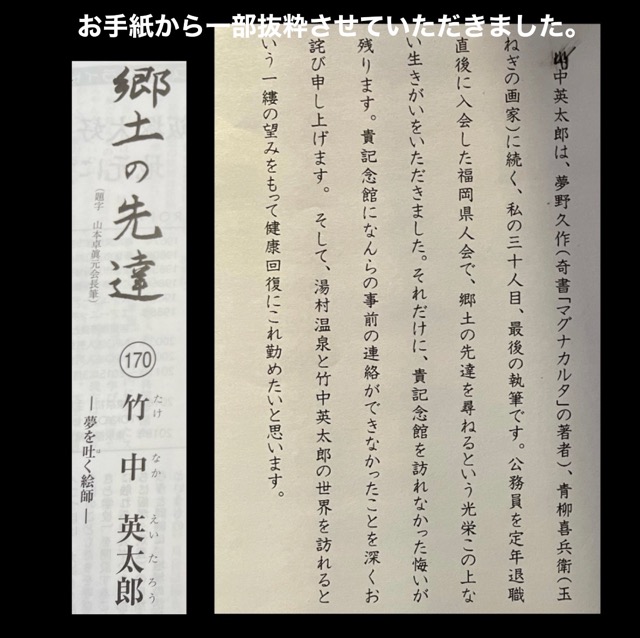 お手紙から一部抜粋させていただきました。
竹中英太郎は、夢野久作(奇書「マグナカルタ」の著者)、青柳喜兵衛(玉
ねぎの画家)に続く、私の三十人目、最後の執筆です。公務員を定年退職
直後に入会した福岡県人会で、郷土の先達を尋ねるという光栄この上な
い生きがいをいただきました。それだけに、貴記念館を訪れなかった悔いが
残ります。貴記念館になんらの事前の連絡ができなかったことを深くお
詫び申し上げます。 そして、湯村温泉と竹中英太郎の世界を訪れると
いう一縷の望みをもって健康回復にこれ勤めたいと思います。
郷土の先達
(題字 山本卓眞元会長筆)
170
竹中英太郎
たけなかえいたろう
―夢を吐く絵師―